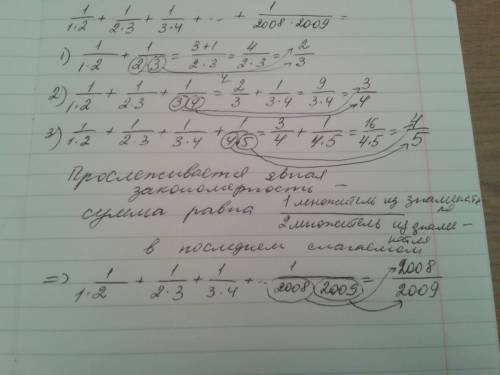 1/(1·2) + 1/(2·3) + 1/(3·4) + ... + 1/(2008·2009) =
1) 1/(1·2) + 1/(2·3) = (3+1)/(2·3) = 4/(2·3) = 2/3
2) 1/(1·2) + 1/(2·3) + 1/(3·4) = 2/3 + 1/(3·4) = 9/(3·4) = 3/4
3) 1/(1·2) + 1/(2·3) + 1/(3·4) + 1/(4·5) = 3/4 + 1/(4·5) = 16/(4·5) = 4/5
Прослеживается явная
закономерность –
сумма равна 1 множитель из знаменателя / 2 множитель из знаменателя
в последнем слагаемом
=> 1/(1·2) + 1/(2·3) + 1/(3·4) + ... 1/(2008·2009) = 2008/2009